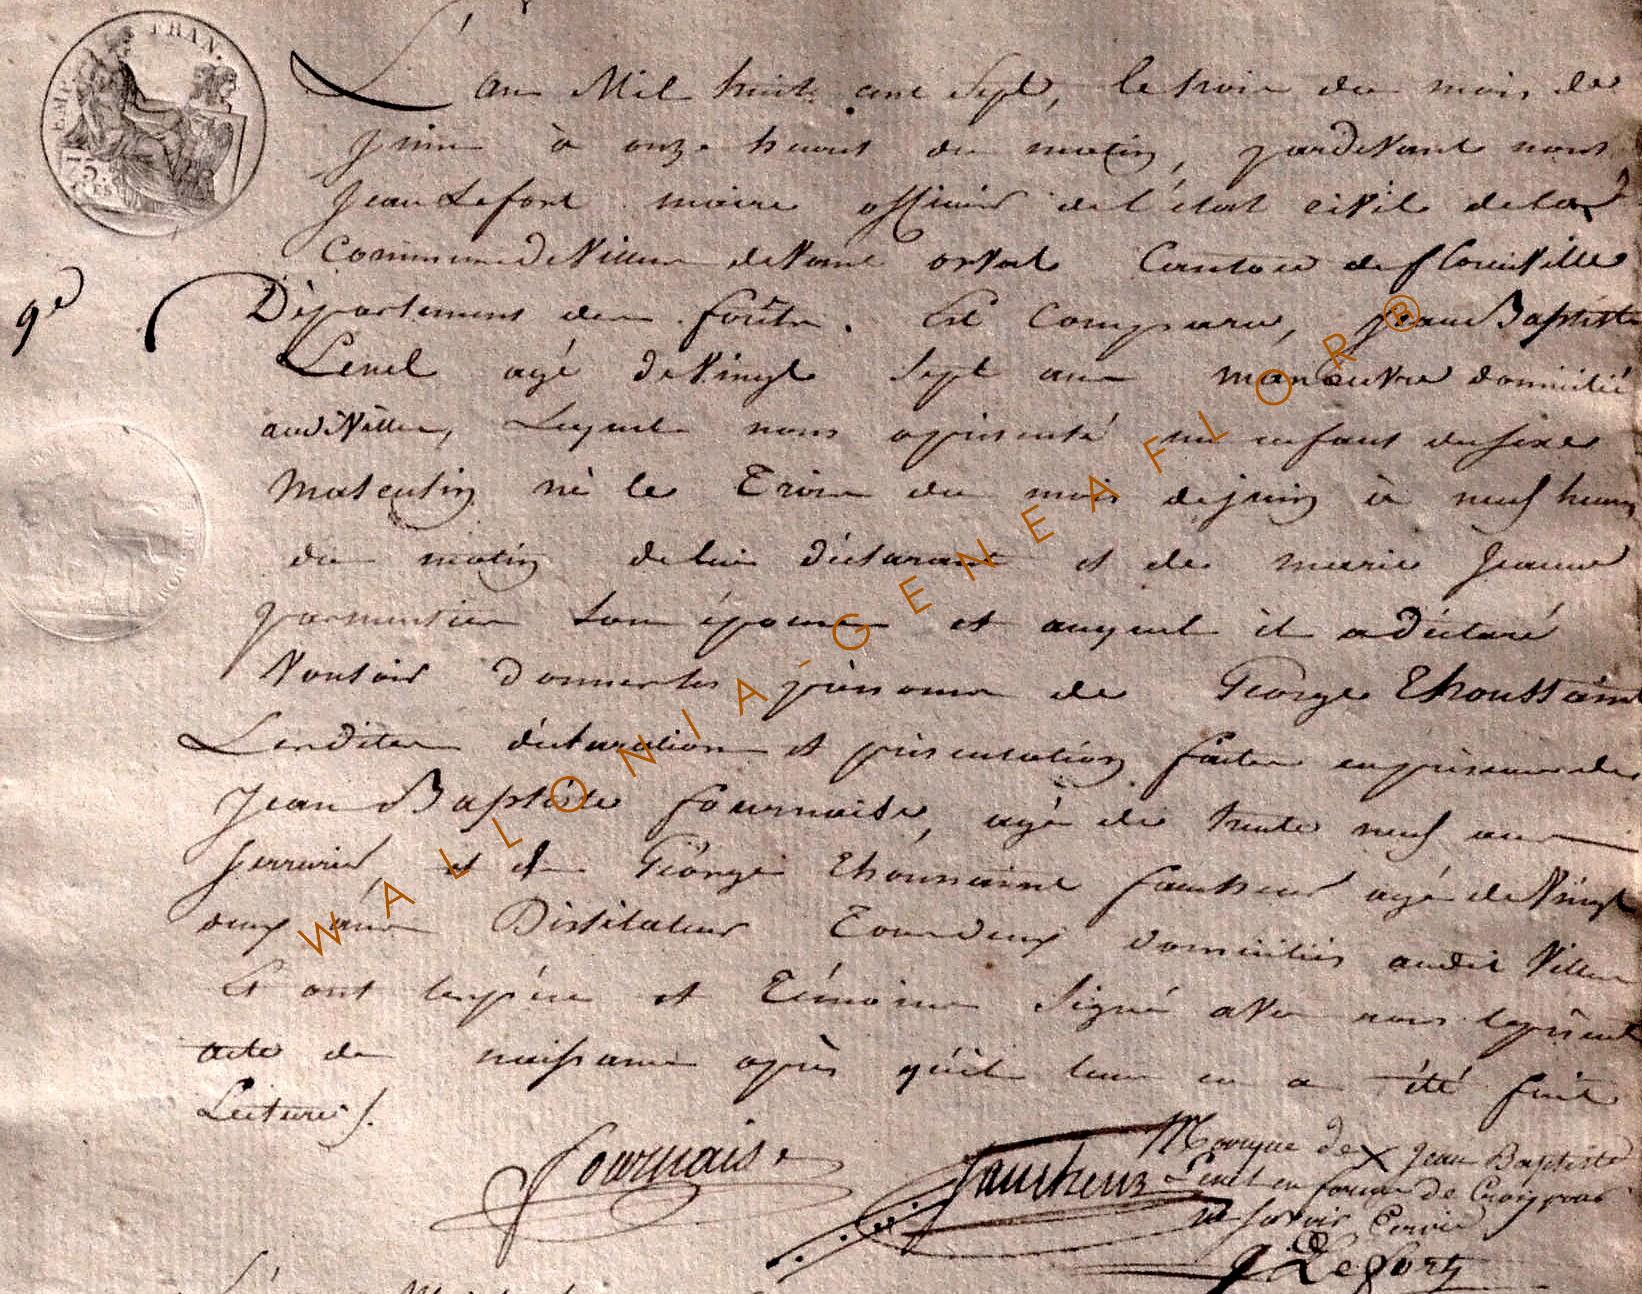 EMP. FRAN.
75.
L'an Mil huit cent Sept, le trois du mois de
Juin à onze heures du matin, pardevant nous
Jean Lefort maire officier de l'état civil de la
Commune de Villers devant orval Canton de florenville
9e
Département des forêts. Est Comparu, Jean Baptiste
Lenel agé de Vingt Sept ans manoeuvre domicilié
audit Villers, Lequel nous a présenté un enfant du sexe
Masculin né le Trois du mois de juin à neuf heures
du matin de lui déclarant et de marie Jeanne
parmentier Son épouse et auquel il a déclaré
Vouloir donner les prénoms de George Thoussaint
Lesdites déclaration et présentation faites en présence de
Jean Baptiste fournaise, agé de trente neuf ans
Serrurier et de George Thoussaint fautheux agé de Vingt
ans Distilateur Tous deux domiciliés audit Villers
Et ont les père et Témoins Signé avec nous le présent
acte de naissance après qu'il leur en a été fait
Lecture.
fournaise
Marque de X Jean Baptiste
Lenel en forme de Croix pour
ne savoir Ecrire
J Lefort
WALLONIA-GENEAFLOR®